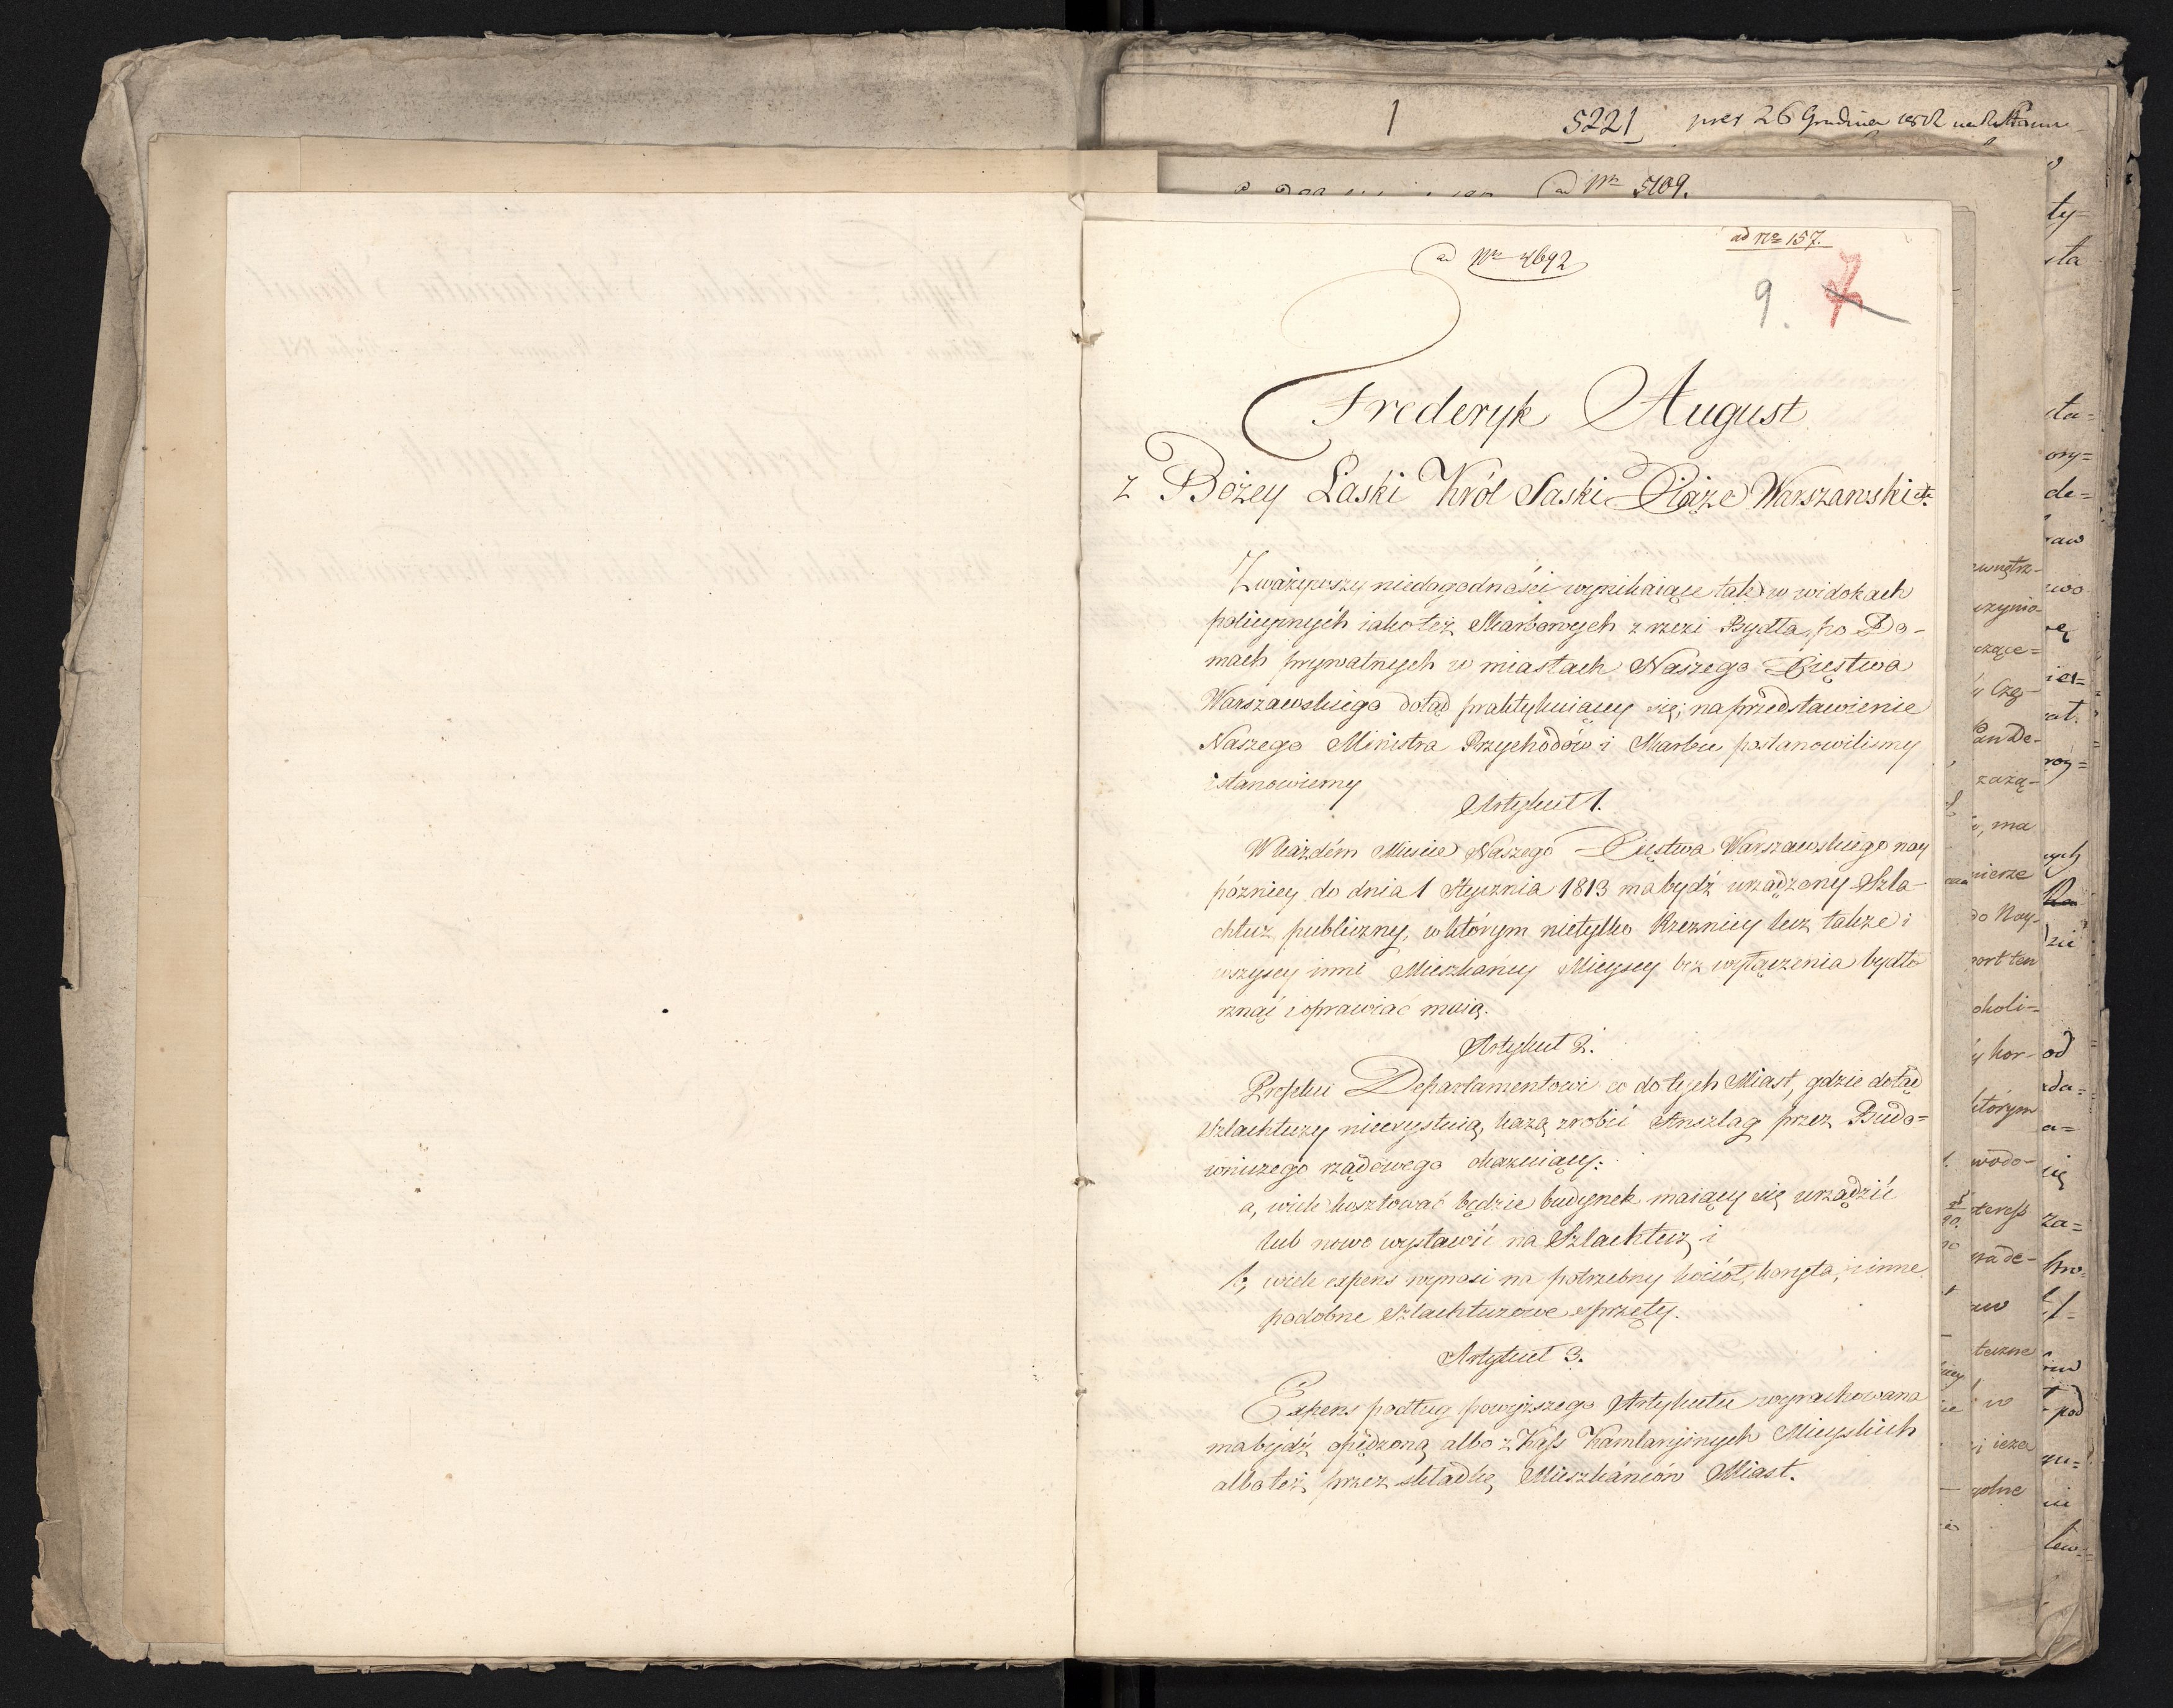 1 5221 pres 26 Grudnia
ad Nr 5109.
ad No 157.
ad Nr 4692
9. 7
Frederyk August
z Bożey Łaski Król Saski Xiąże Warszawski etc.
Zważywszy niedogodności wynikaiące tak w widokach
policyinych iako też Skarbowych z rzezi Bydła po Do-
mach prywatnych w miastach Naszego Xięstwa
Warszawskiego dotąd praktykuiącey się; na przedstawienie
Naszego Ministra Przychodów i Skarbu postanowilismy
i stanowiemy
Artykuł 1.
W każdém Mieście Naszego Xięstwa Warszawskiego nay
pózniey do dnia 1 Stycznia 1813 ma bydź urządzony Szla-
chtuz publiczny, w którym nietylko Rzeznicy lecz także i
wszyscy inni Mieszkańcy Mieyscy bez wyłączenia bydło
rznąć i oprawiać maią.
Artykuł 2.
Prefekci Departamentowi co do tych Miast, gdzie dotąd
Szlachtuzy nieexystuią, każą zrobić Anszlag przez Budo=
wniczego rządowego okazuiący:
a, wiele kosztować będzie budynek maiący się urządzić
lub nowo wystawić na Szlachtuz i
b, wiele expens wynosi na potrzebny kocioł, koryta, i inne
podobne Szlachtuzowe sprzęty.
Artykuł 3.
Expens podług powyższego Artykułu wyrachowana
ma bydź opędzoną albo z Kass Kamlaryinych Mieyskich
albo też przez składkę Mieszkańców Miast.